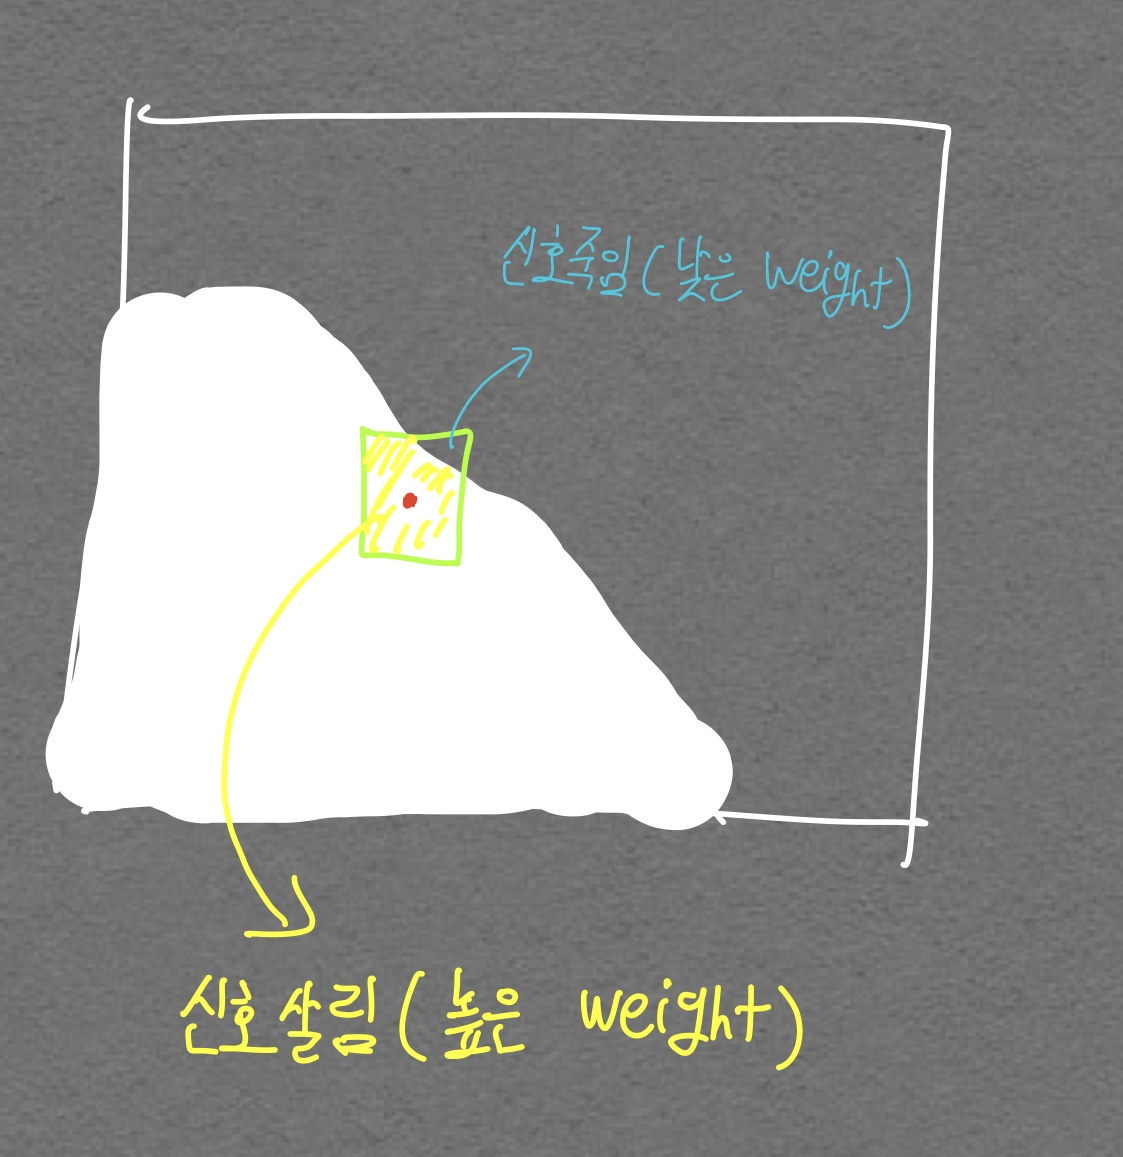 신호죽임(낮은 weight)
신호살림(높은 weight)